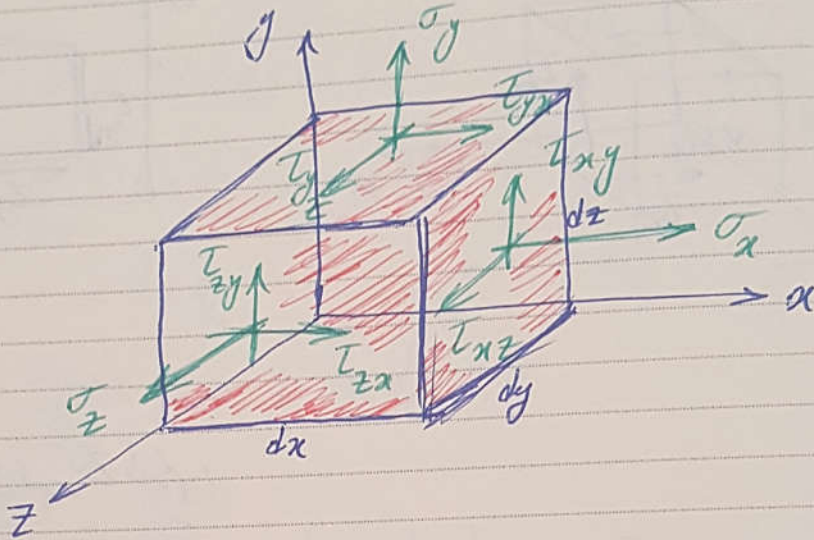 y
σy
τyx
τyz
τxy
dz
σx
τzy
x
τxz
τzx
σz
dy
dx
z